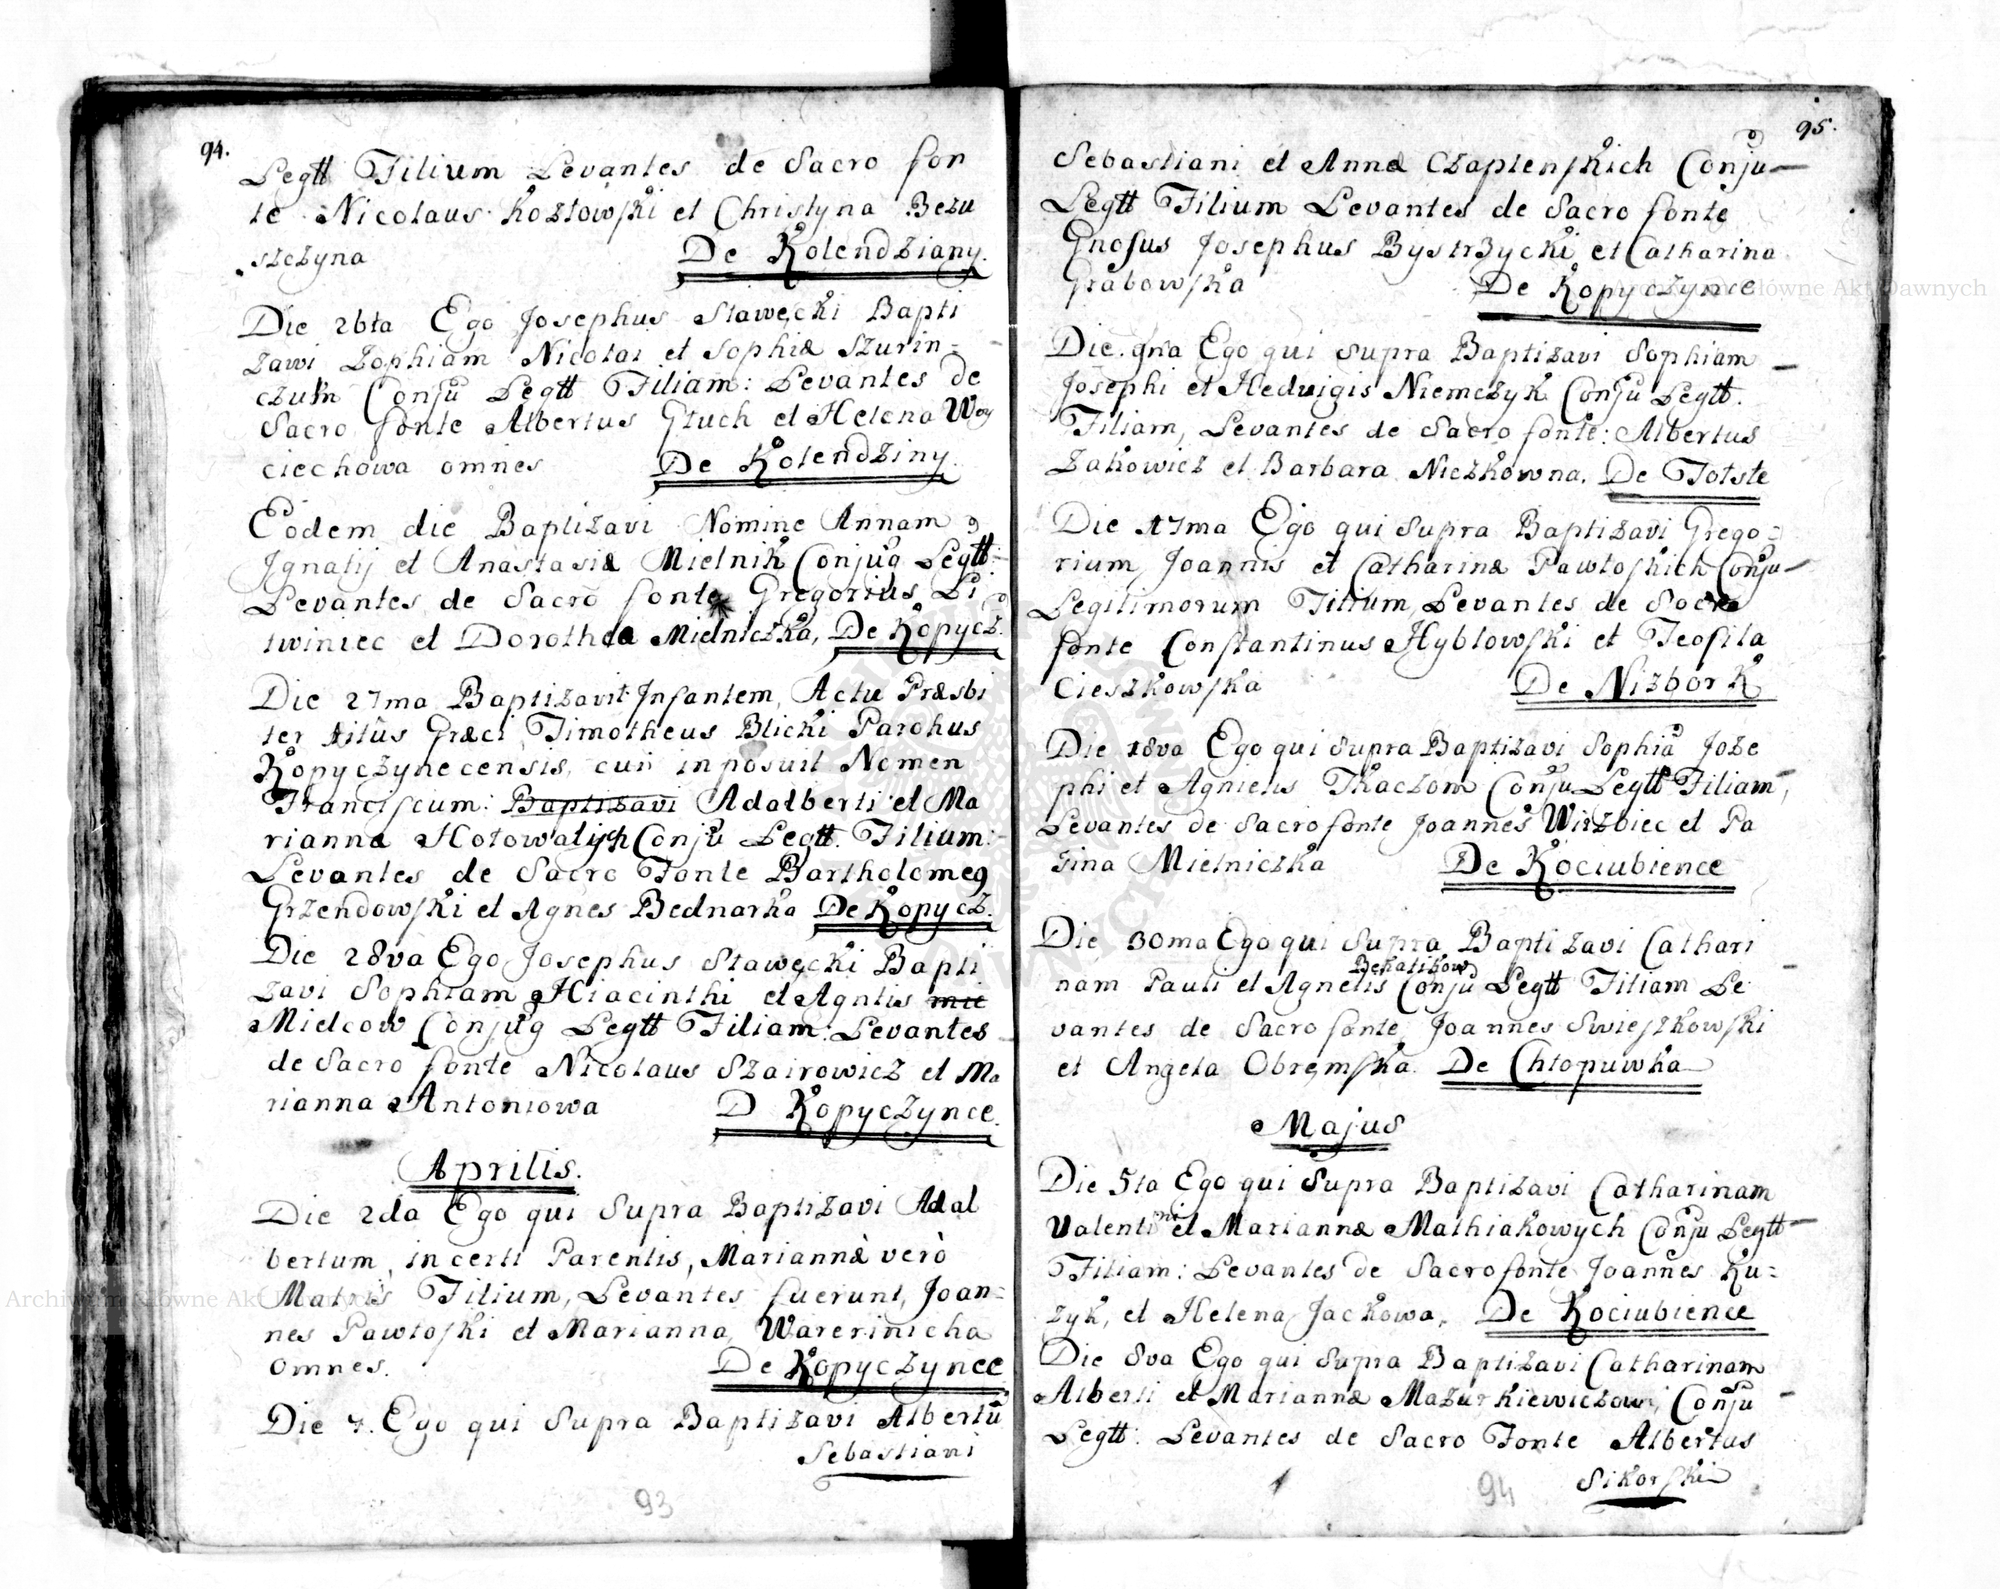 94.
Legtt Filium Levantes de Sacro fon
te Nicolaus Kozłowski et Christyna Bezu
szczyna De Kolendziany.
Die 26ta Ego Josephus Sławęcki Bapti
zavi Zophiam Nicolai et Sophiæ Szurin=
czuk Conju Legtt Filiam: Levantes de
Sacro fonte Albertus Głuch et Helena Woy
ciechowa omnes De Kolendziny.
Eodem die Baptizavi Nomine Annam
Ignatij et Anastasiæ Mielnik Conjug Legtt:
Levantes de Sacro fonte Gregorius Li
twiniec et Dorothea Mielniczka, De Kopycz.
Die 27ma Baptizavit Infantem, Actu Præsbi
ter ritûs Græci Timotheus Blicki Parohus
Kopyczynecensis, cui inposuit Nomen
Franciscum: Baptizavi Adalberti et Ma
riannæ Hołowatych Conju Legtt. Filium:
Levantes de Sacro Fonte Bartholomeg
Grzendowski et Agnes Bednarka De Kopycz.
Die 28va Ego Josephus Sławęcki Bapti
zavi Sophiam Hiacinthi et Agnetis mie
Mielcow Conjug Legtt Filiam: Levantes
de Sacro fonte Nicolaus Szairowicz et Ma
rianna Antoniowa D Kopyczynce.
Aprilis.
Die 2da Ego qui Supra Baptizavi Adal
bertum, incerti Parentis, Mariannæ verò
Matris Filium, Levantes fuerunt, Joan=
nes Pawłoski et Marianna Warerinicha
omnes. De Kopyczynce
Die 7. Ego qui Supra Baptizavi Albertū
Sebastiani
93
95.
Sebastiani et Annæ Czaplenskich Conju
Legtt Filium Levantes de Sacro fonte
Gnosus Josephus Bystrzycki et Catharina
Grabowska De Kopyczynce
Die 9na Ego qui Supra Baptizavi Sophiam
Josephi et Hedvigis Niemczyk Conju Legtt.
Filiam, Levantes de Sacro fonte: Albertus
Zakowicz et Barbara Niezkowna. De Tołste
Die 17ma Ego qui Supra Baptizavi Grego=
rium Joannis et Catharinæ Pawłoskich Conju
Legitimorum Filium, Levantes de Sacro
fonte Constantinus Hybłowski et Teofila
Cieszkowska De Nizbork
Die 18va Ego qui Supra Baptizavi Sophiā Joze
phi et Agnietis Tkaczom Conju Legtt Filiam,
Levantes de Sacro fonte Joannes Wirzbiec et Pa
zina Mielniczka De Kociubience
Die 30ma Ego qui Supra Baptizavi Cathari
Bekalikow
nam Pauli et Agnetis Conju Legtt Filiam Le
vantes de Sacro fonte, Joannes Swieszkowski
et Angela Obremska. De Chłopuwka
Majus
Die 5ta Ego qui Supra Baptizavi Catharinam
Valentini et Mariannæ Mathiakowych Conju Legtt
Filiam: Levantes de Sacro fonte Joannes Ku=
zyk, et Helena Jackowa, De Kociubience
Die 8va Ego qui Supra Baptizavi Catharinam
Alberti et Mariannæ Mazurkiewiczow, Conju
Legtt: Levantes de Sacro Fonte Albertus
Sikorski
94
Archiwum Główne Akt Dawnych
Archiwum Główne Akt Dawnych